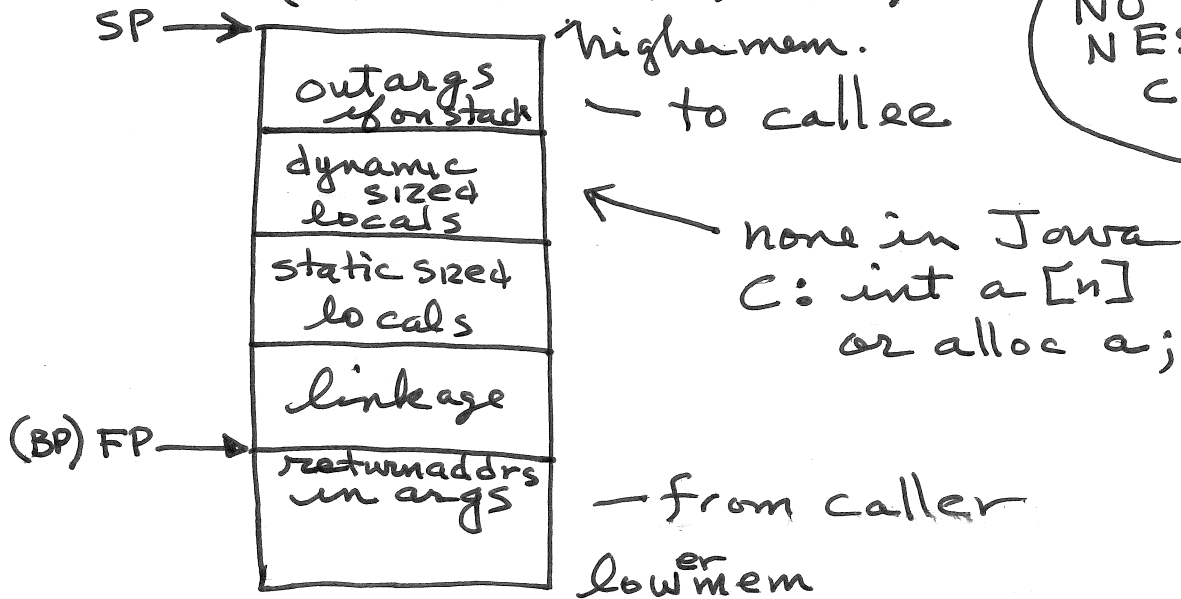 SP
higher mem.
NO
NES
C
out args
if on stack
— to callee
dynamic
sized
locals
none in Jowa
C: int a [n]
or alloc a;
static sized
locals
linkage
(BP) FP
return addrs
in args
— from caller
lower mem